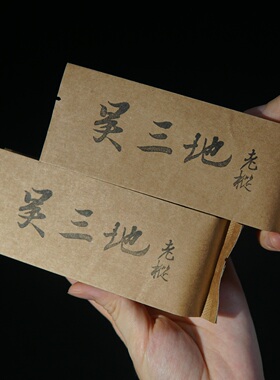 吴三地
老樅
吴三地
老樅